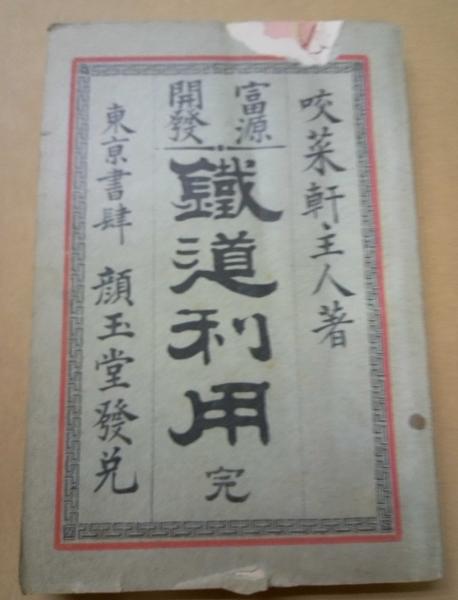 咬菜軒主人著
富源
開發
鐵道利用 完
東京書肆 顔玉堂發兌